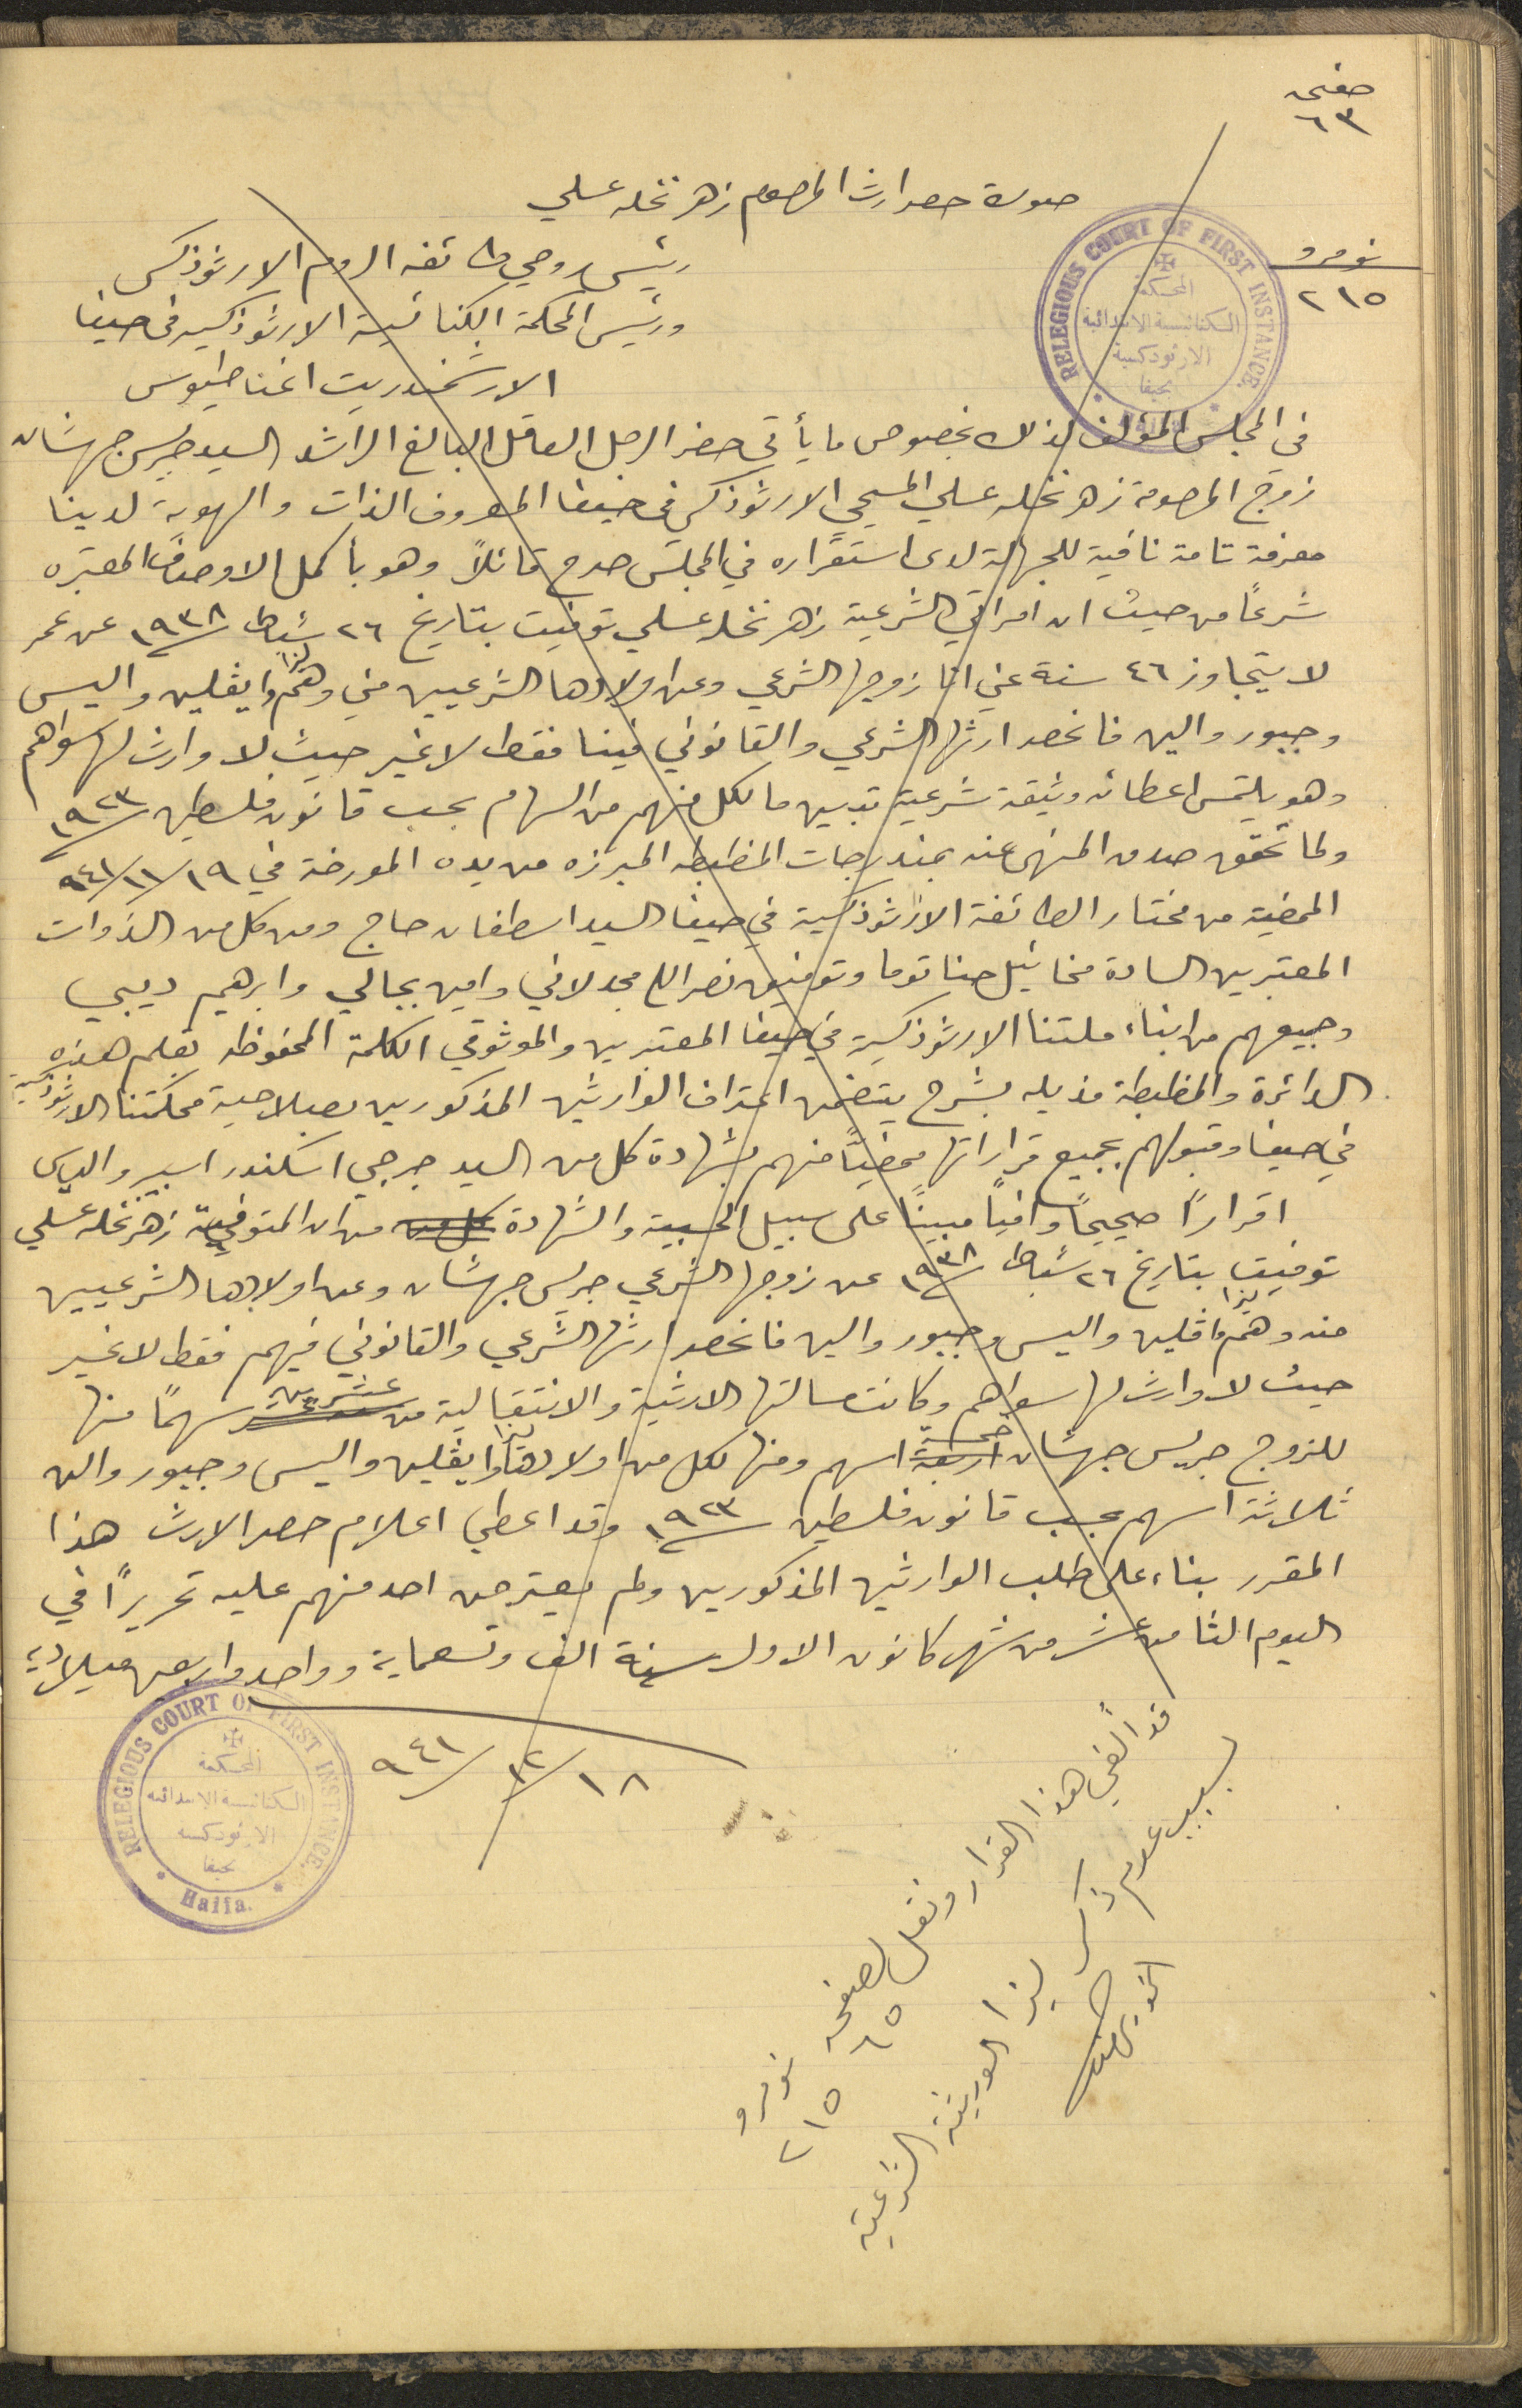 صفحه
٦٣
صورة حصر ارث المرحومه زهر نخله عسلي
نومرو
٢١٥
RELEGIOUS COURT OF FIRST INSTANCE.
المحكمة
الكنائسية الابتدائية
الارثوذكسية
بحيفا
رئيس روحي طائفه الروم الارثوذكس
ورئيس المحكمة الكنائسية الارثوذكسيه في حيفا
الارشمندريت اغناطيوس
في المجلس المؤلف لذلك بخصوص ما يأتي حضر الرجل العاقل البالغ الراشد السيد جريس جهشان
زوج المرحومة زهر نخله عسلي المسيحي الارثوذكسي في حيفا المعروف الذات والهوية لدينا
معرفة تامة نافية للجهالة لدى استقراره في المجلس صرح قائلاً وهو بأكمل الاوصاف المعتبره
شرعاً من حيث ان امراتي الشرعية زهر نخله عسلي توفيت بتاريخ ٢٦ شباط ١٩٣٨ عن عمر
لا يتجاوز ٤٦ سنة عني انا زوجها الشرعي وعن اولادها الشرعيين مني وهم ليزا وايفلين واليس
وجبور والين فانحصر ارثها الشرعي والقانوني فينا فقط لا غير حيث لا وارث لها سواهم
وهو يلتمس اعطائه وثيقة شرعية تبين ما لكل منهم من السهام بحسب قانون فلسطين ١٩٢٣
ولما تحقق صدق المنهى عنه بمندرجات المظبطه المبرزه من يده المورخة في ١٩/١١/٩٤١
الممضية من مختار الطائفة الارثوذكسية في حيفا السيد اسطفان حاج ومن كل من الذوات
المعتبرين السادة مخائيل حنا توما وتوفيق نصرالله مجدلاني وامين بجالي وابرهيم ديبي
وجميعهم من ابناء ملتنا الارثوذكسية في حيفا المعتبرين والموثوقي الكلمة المحفوظه بقلم هذه
الدائرة والمظبطة مذيله بشرح يتضمن اعتراف الوارثين المذكورين بصلاحية محكمتنا الارثوذكسية
في حيفا وقبولهم بجميع قراراتها ممضياً منهم بشهادة كل من السيد جرجي اسكندر اسبر والياس
اقراراً صحيحاً وافياً مبيناً على سبيل الحسبية والشهادة كل من من ان المتوفية زهر نخله عسلي
توفيت بتاريخ ٢٦ شباط ١٩٣٨ عن زوجها الشرعي جريس جهشان وعن اولادها الشرعيين
منه وهم ليزا وافلين واليس وجبور والين فانحصر ارثها الشرعي والقانوني فيهم فقط لا غير
حيث لا وارث لها سواهم وكانت مسالتها الارثية والانتقالية من عشرين سهماً منها
للزوج جريس جهشان اربعة خمسة اسهم ومنها لكل من اولادها ليزا وايفلين واليس وجبور والين
ثلاثة اسهم بحسب قانون فلسطين ١٩٢٣ وقد اعطي اعلام حصر الارث هذا
المقرر بناء على طلب الوارثين المذكورين ولم يعترض احد منهم عليه تحريراً في
اليوم الثامن عشر من شهر كانون الاول سنة الف وتسعماية وواحد واربعين ميلادية
١٨/١٢/٩٤١
RELEGIOUS COURT OF FIRST INSTANCE.
المحكمة
الكنائسية الابتدائية
الارثوذكسية
بحيفا
Haifa.
قد ألغي هذا القرار ونقل لصفحه ٦٥ نومرو ٢١٥
بسبب عدم ذكر ليزا الوريثة الشرعية